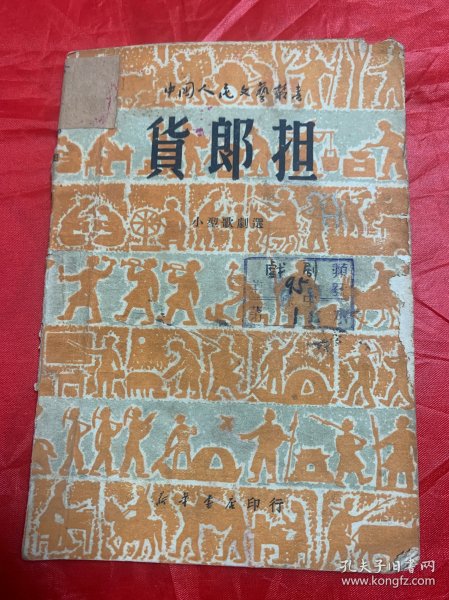 中國人民文藝叢書
貨郎担
小型歌劇選
戲劇 類
95
1
新華書店印行
孔夫子旧书网
www.kongfz.com